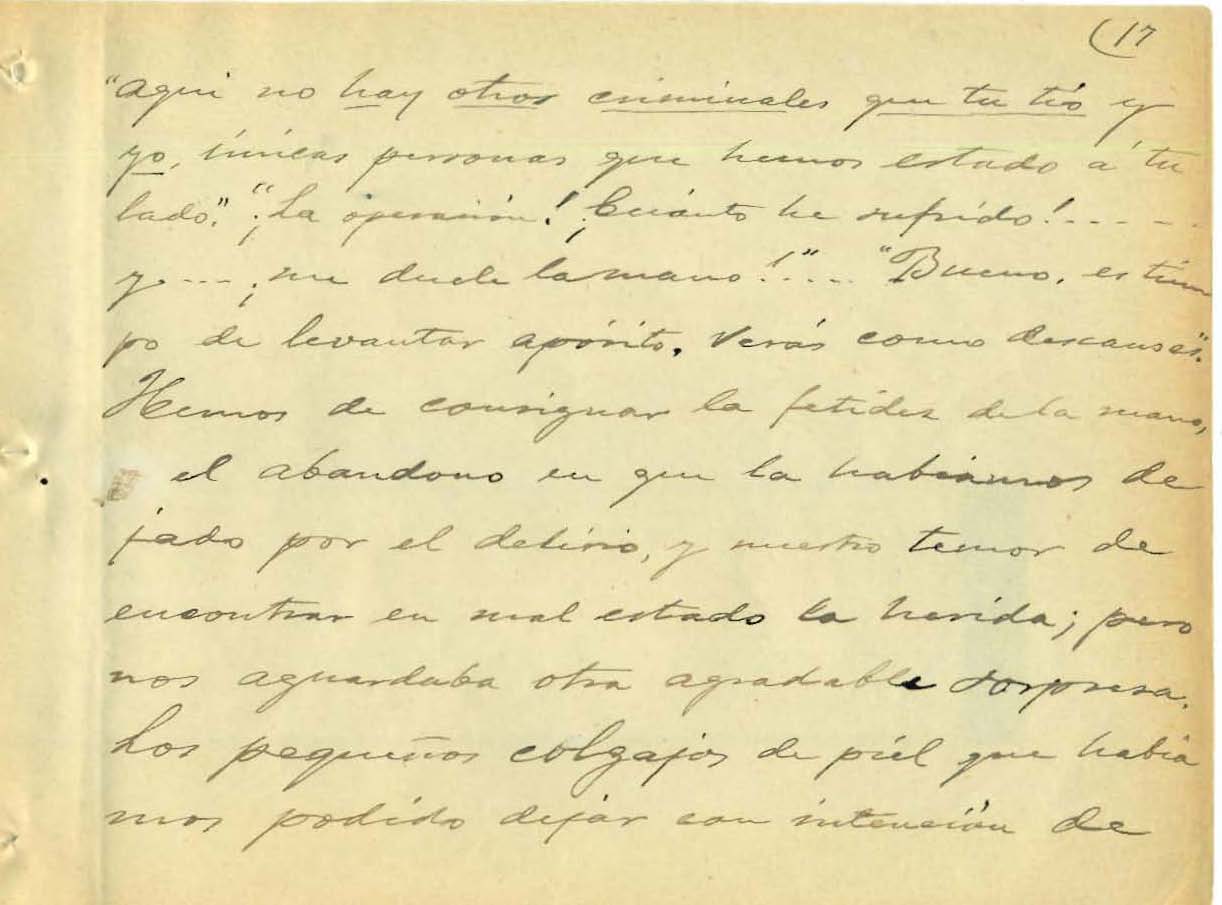 (17
"aqui no hay otros criminales que tu tío y
yo, únicas personas que hemos estado á tu
lado". "¡La operación! ¡Cuánto he sufrido!-----
y---- ¡me duele la mano!".... "Bueno, es tiem
po de levantar apósito. Verás como descansas".
Hemos de consignar la fetidez de la mano,
el abandono en que la habiamos de
jado por el delirio, y nuestro temor de
encontrar en mal estado la herida; pero
nos aguardaba otra agradable sorpresa.
Los pequeños colgajos de piel que habia
mos podido dejar con intención de